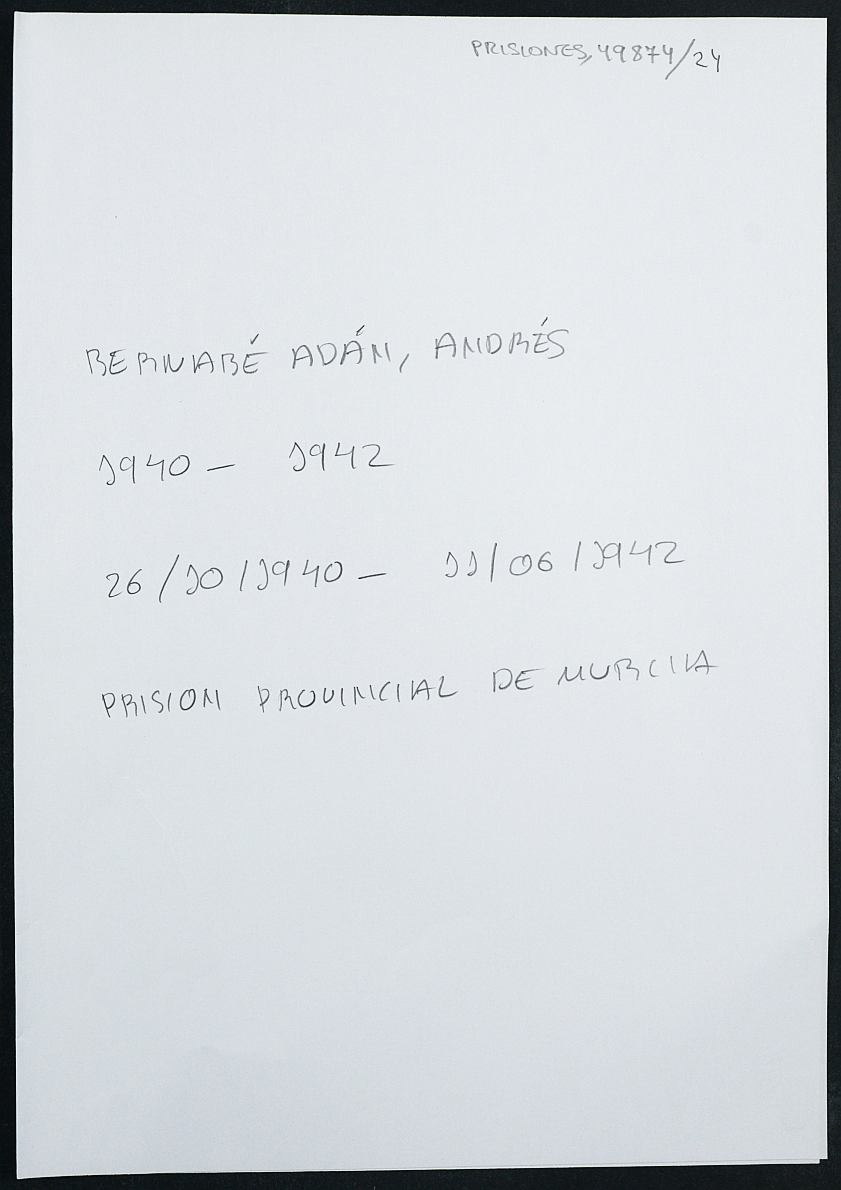 PRISIONES, 49874/24
BERNABÉ ADÁN, ANDRÉS
1940 - 1942
26/10/1940 - 11/06/1942
PRISION PROVINCIAL DE MURCIA